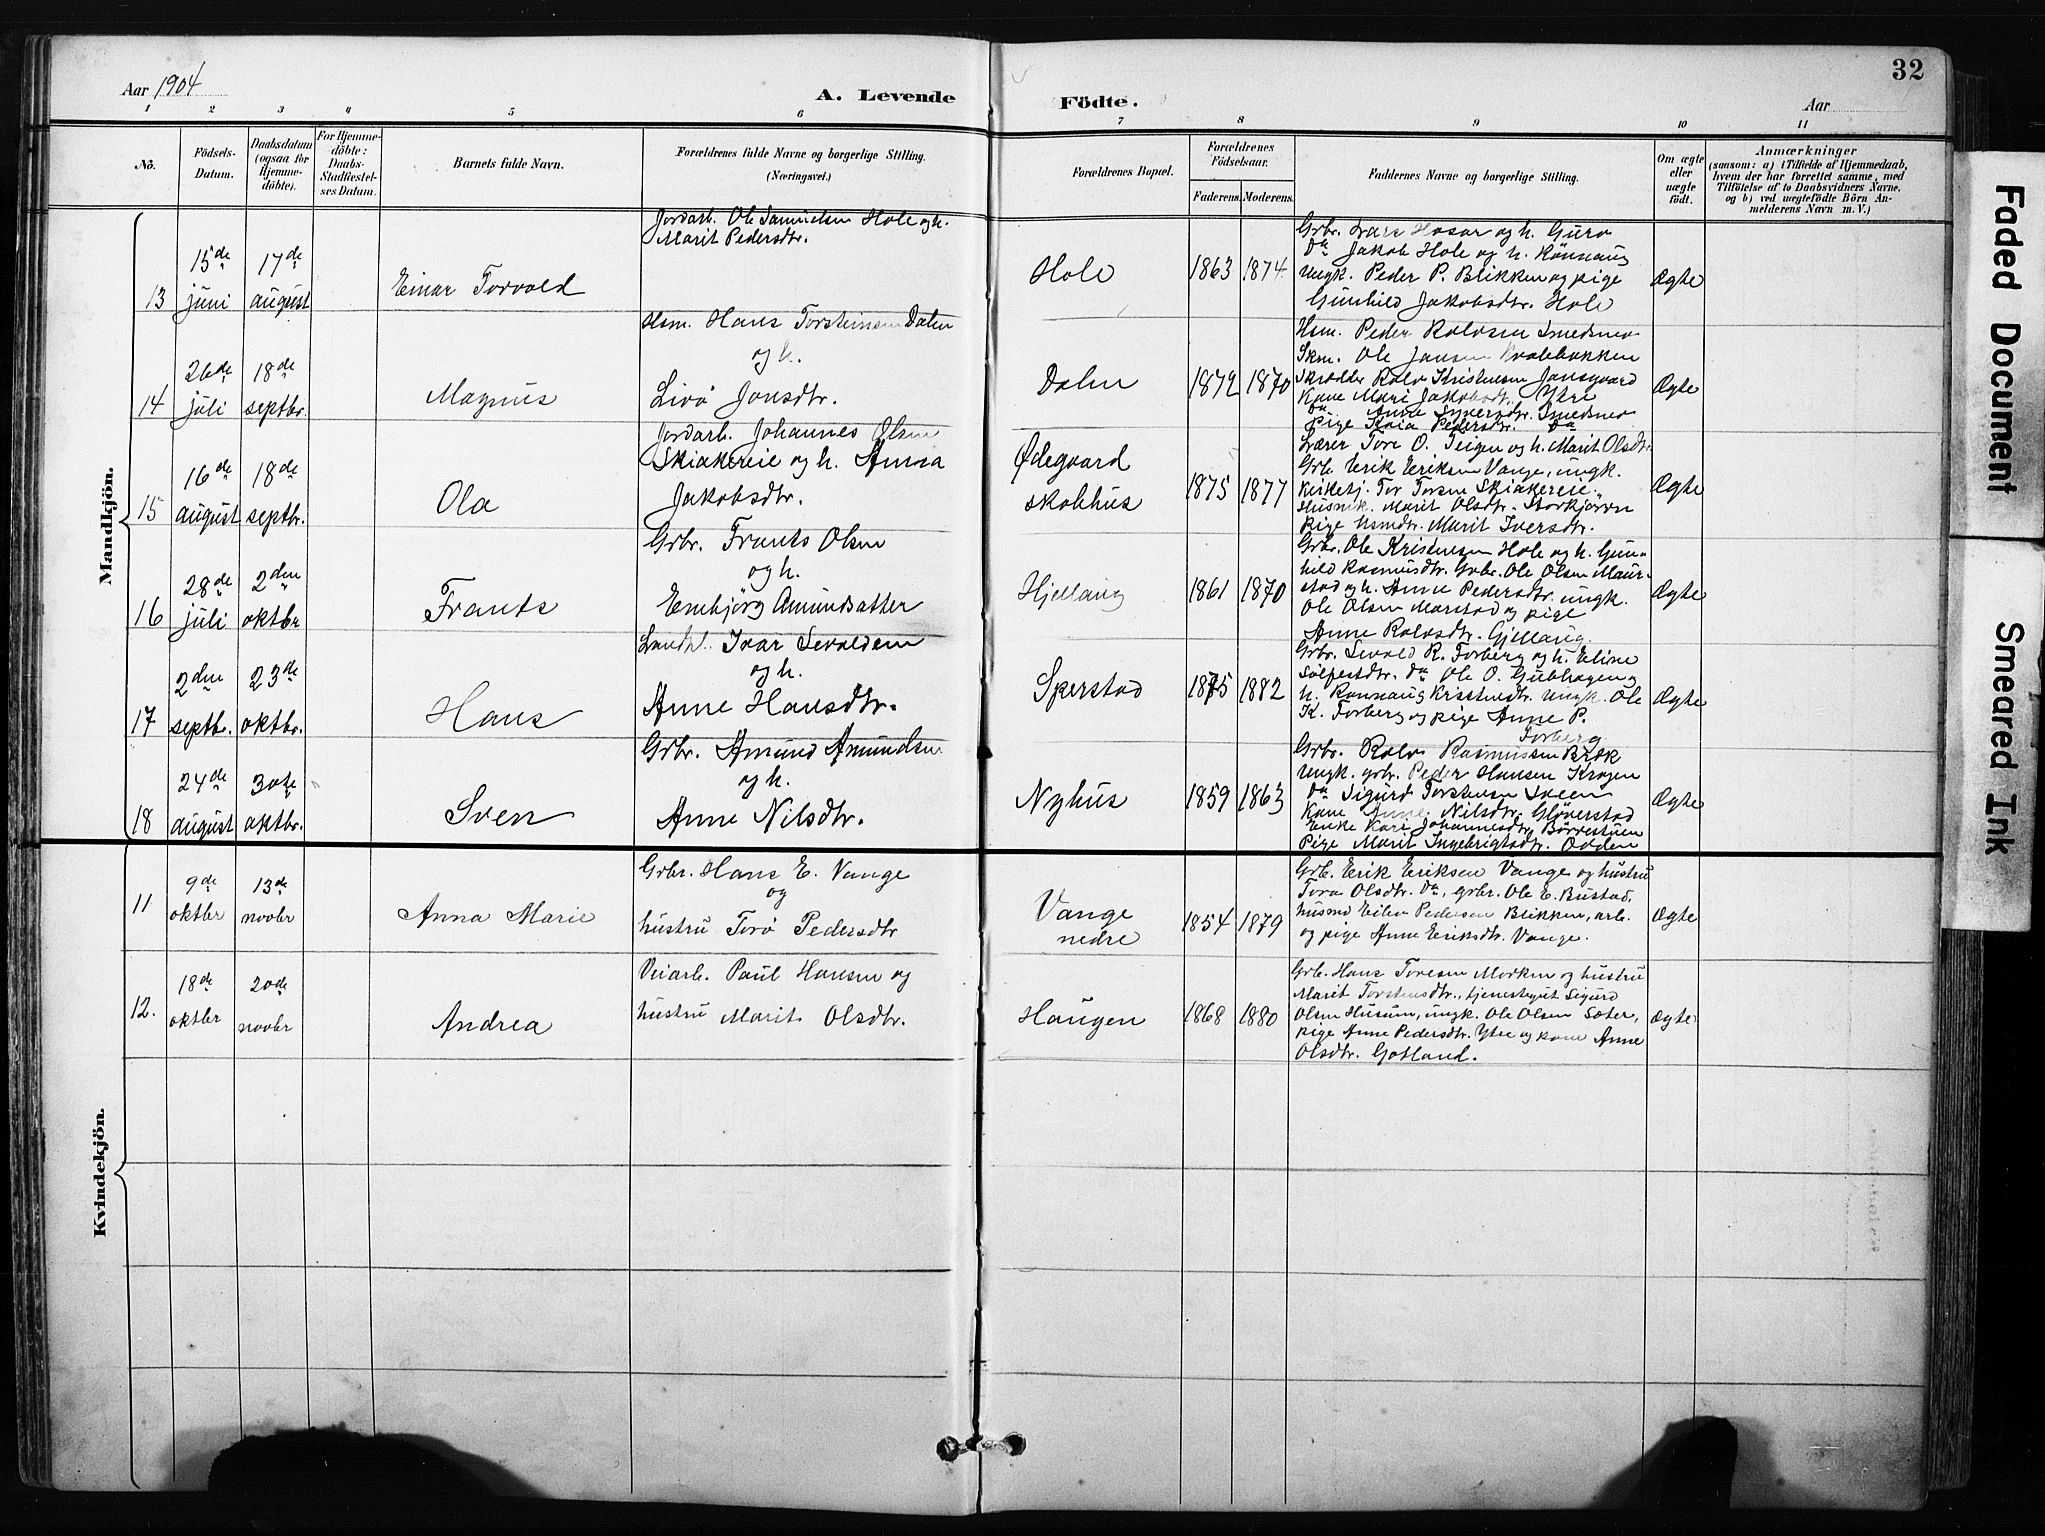 32
Aar 1904
A. Levende Födte.
Aar
1 2 3 4 5 6 7 8 9 10 11
No.
Födsels-Datum.
Daabsdatum (ogsaa for Hjemme-döbte).
For Hjemme-döbte: Daabs-Stadfæstelses Datum.
Barnets fulde Navn.
Forældrenes fulde Navne og borgerlige Stilling.
(Næringsvei.)
Forældrenes Bopæl.
Forældrenes Födselsaar.
Faderens. Moderens.
Faddernes Navne og borgerlige Stilling.
Om ægte eller uægte födt.
Anmærkninger
(saasom: a) i Tilfælde af Hjemmedaab, hvem der har forrettet samme, med Tilföielse af to Daabsvidners Navne, og b) ved uægtefödte Börn Anmelderens Navn m. V.)
Mandkjön.
13
15de juni
17de august
Einar Torvald
Jordarb. Ole Samuelsen Hole og h.
Marit Pedersdtr.
Hole
1863 1874
Grbr. Lars Hosar og h. Guro
Do Jakob Hole og h. Rönnaug
Ungk. Peder P. Blikken og pige
Gunhild Jakobsdtr. Hole
Ægte
14
26de juli
18de septbr.
Magnus
Hsm. Hans Torsteinsen Dalen
og h.
Livö Jonsdtr.
Dalen
1872 1870
Hsm. Peder Rolvsen Smedsmo
Skm. Ole Jansen Kvalebakken
Skrædder Rolv Kristensen Jonsgaard
Kone Mari Jakobsdtr. Ytre
Do Anne Syversdtr. Smedsmo
Pige Kaia Pedersdtr. Do
Ægte
15
16de august
18de septbr.
Ola
Jordarb. Johannes Olsen
Skiakereie og h. Anna
Jakobsdtr.
Ødegaard
skolehus
1875 1877
Lærer Tore O. Teigen og h. Marit Olsdtr.
Grb. Erik Eriksen Vange, ungk.
kirketj. Tor Torsen Skiakereie,
Husmk. Marit Olsdtr. Storkjorren
pige hsmdtr. Marit Iversdtr.
Ægte
16
28de juli
2den oktbr
Frants
Grbr. Frants Olsen
og h.
Embjörg Amundsatter
Hjellaug
1861 1870
Grbr. Ole Kristensen Hole og h. Gun-
hild Rasmusdtr. Grbr. Ole Olsen Maur-
stad og h. Anne Pedersdtr. ungk.
Ole Olsen Marstad og pige
Anne Rolvsdtr. Gjellaug.
Ægte
17
2den septbr.
23de oktbr.
Hans
Landh. Ivar Sevaldsen
og h.
Anne Hansdtr.
Sperstad
1875 1882
Grbr. Sevald R. Forberg og h. Eline
Sölfestdtr. Do Ole O. Gubhagen og
h. Rannaug Kristensdtr. Ungk. Ole
K. Forberg og pige Anne P.
Forberg
Ægte
18
24de august
30te oktbr.
Sven
Grbr. Amund Amundsen
og h.
Anne Nilsdtr.
Nyhus
1859 1863
Grbr. Rolv Rasmussen Bræk
Ungk. grbr. Peder Hansen Krogen
Do Sigurd Torstensen Sveen
Kone Anne Nilsdtr. Glöverstad
Enke Kari Johannesdtr. Börrestuen
Pige Marit Ingebrigtsdtr. Odden
Ægte
Kvindekjön.
11
9de oktbr
13de novbr
Anna Marie
Grbr. Hans E. Vange
og
hustru Torö Pedersdtr
Vange
nedre
1854 1879
Grb. Erik Eriksen Vange og hustru
Tora Olsdtr. Do, grbr. Ole E. Bustad,
husmd Eilev Pedersen Blikken, arb.
og pige Anne Eriksdtr. Vange.
Ægte
12.
18de oktbr
20de novbr
Andrea
Veiarb. Paul Hansen og
hustru Marit Olsdtr.
Haugen
1868 1880
Grb. Hans Toresen Morken og hustru
Marit Torstensdtr., tjenestegut Sigurd
Olsen Husum, ungk. Ole Olsen Sæter,
pige Anne Pedersdtr. Ytre og kone Anne
Olsdtr. Gotland.
Ægte
Faded Document
Smeared Ink